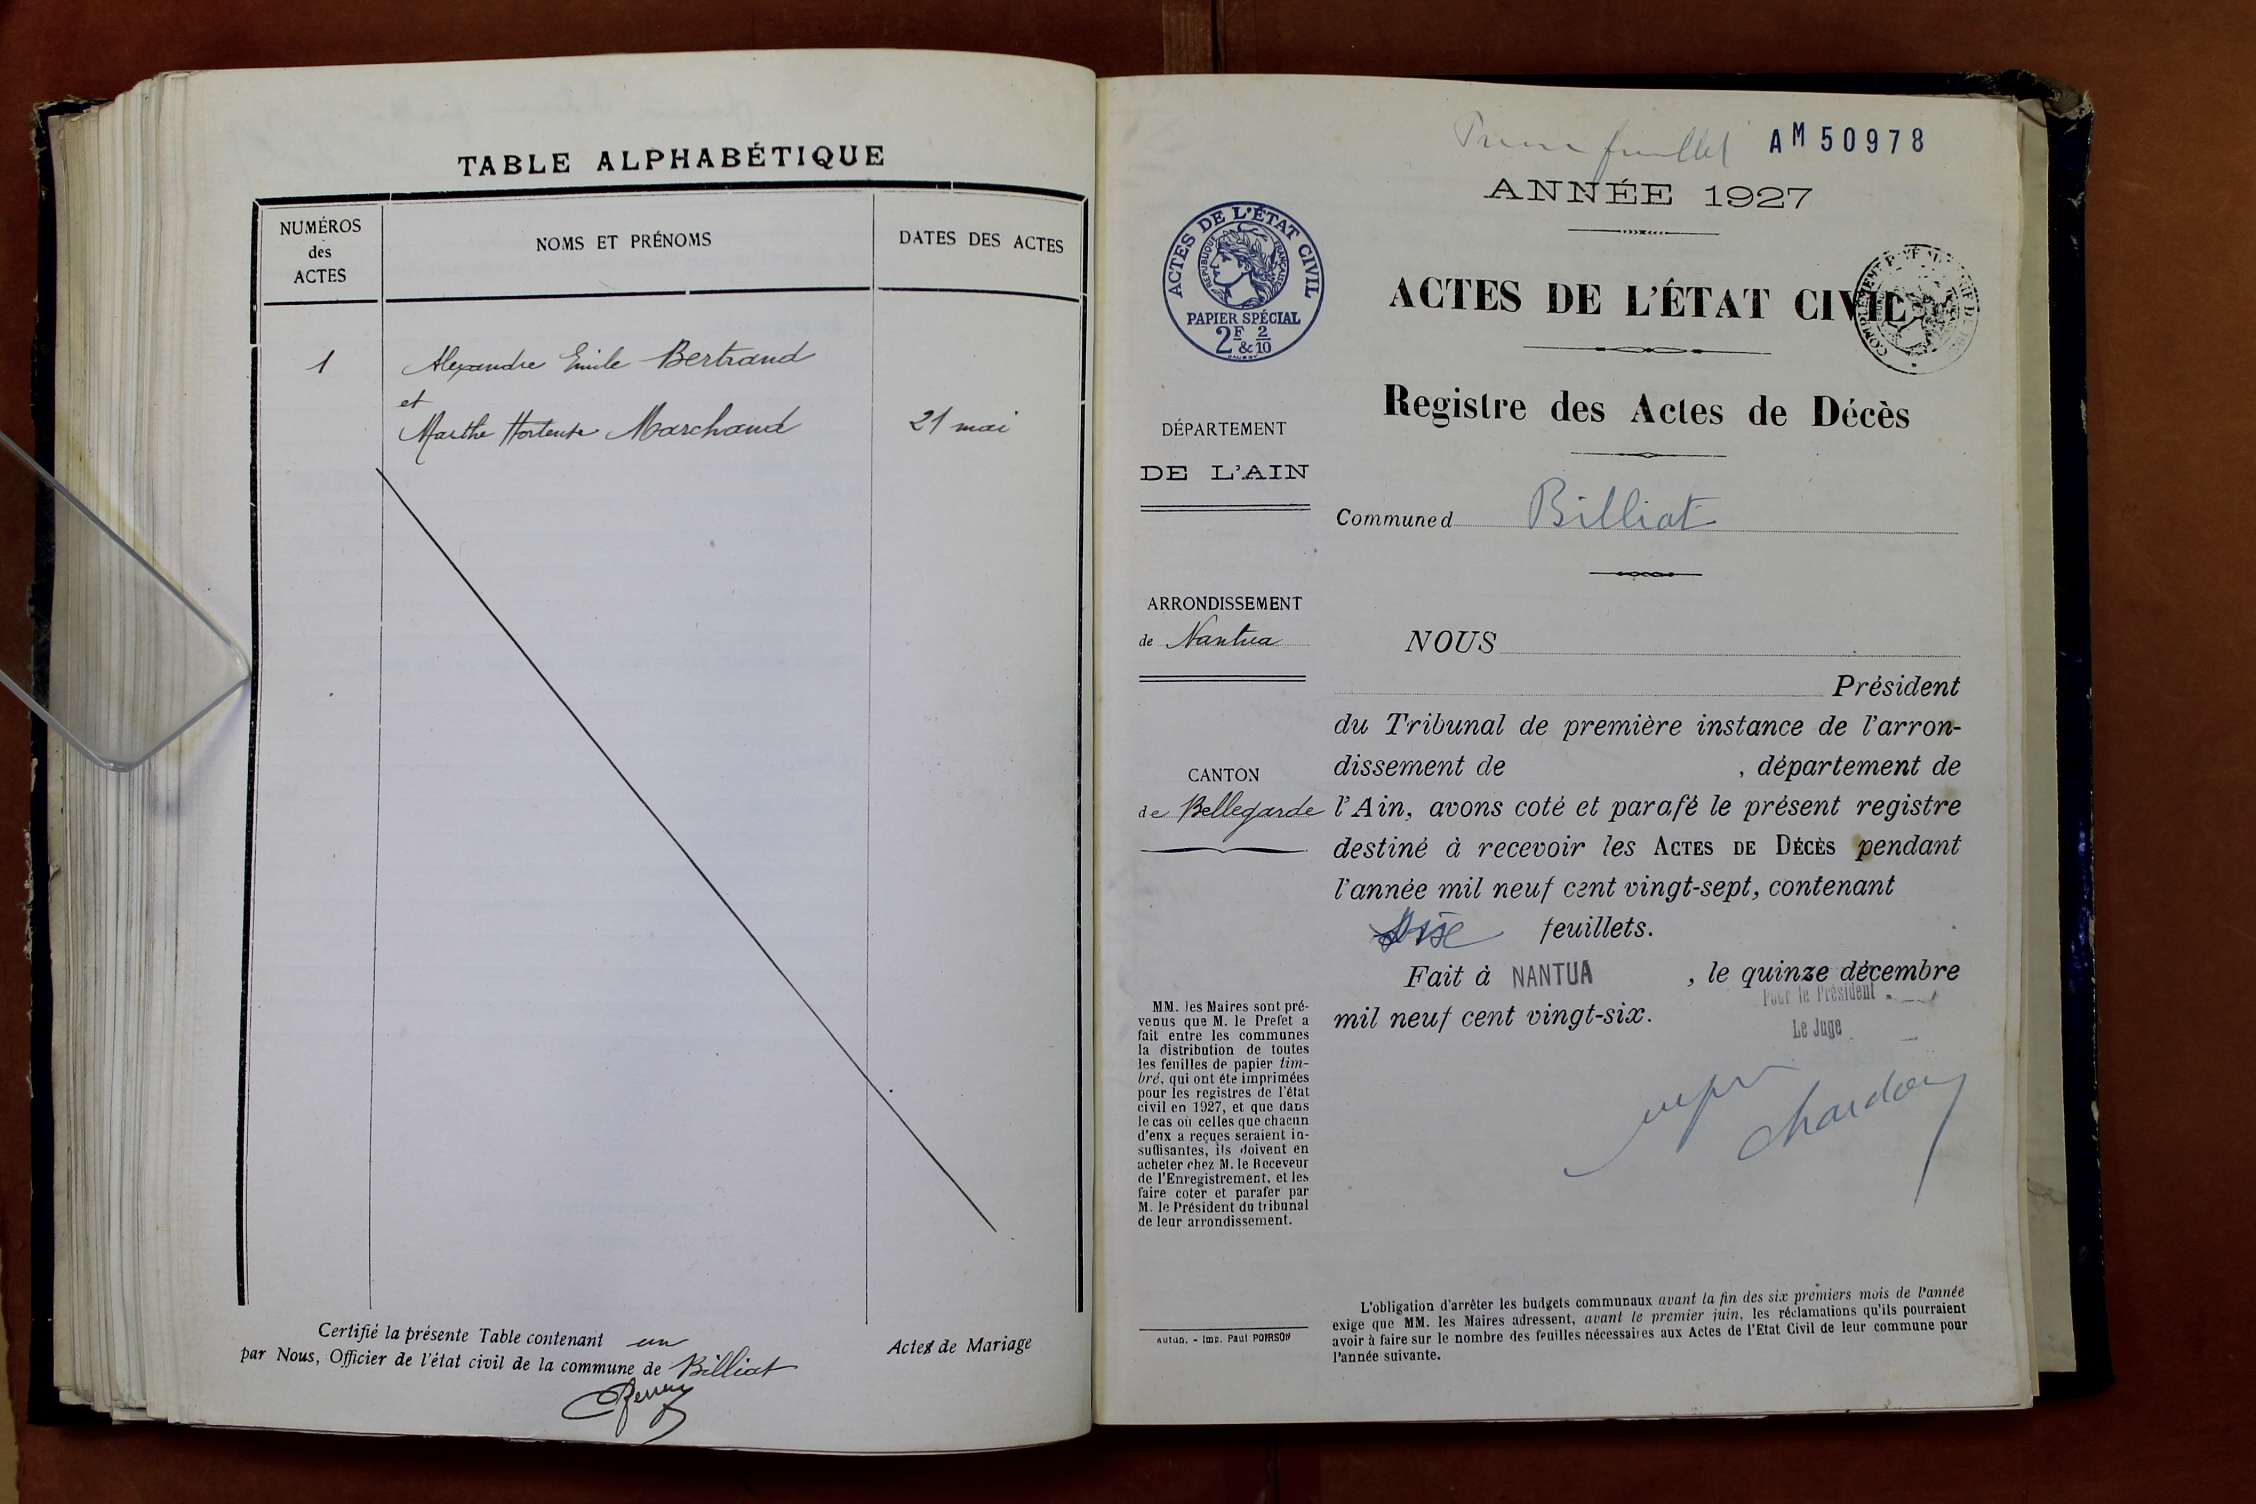 TABLE ALPHABÉTIQUE
NUMÉROS
des
ACTES
NOMS ET PRÉNOMS
DATES DES ACTES
1
Alexandre Emile Bertrand
et
Marthe Hortense Marchand
21 mai
Certifié la présente Table contenant un Actes de Mariage
par Nous, Officier de l'état civil de la commune de Billiat
feuillet AM 50978
ANNÉE 1927
ACTES DE L'ÉTAT CIVIL
RÉPUBLIQUE FRANÇAISE
PAPIER SPÉCIAL
2F & 2/10
ACTES DE L'ÉTAT CIVIL
Registre des Actes de Décès
DÉPARTEMENT
DE L'AIN
Commune d Billiat
ARRONDISSEMENT
de Nantua
CANTON
de Bellegarde
MM. les Maires sont pré-
venus que M. le Prefet a
fait entre les communes
la distribution de toutes
les feuilles de papier tim-
bré, qui ont été imprimées
pour les registres de l'état
civil en 1927, et que dans
le cas où celles que chacun
d'enx a reçues seraient in-
suffisantes, ils doivent en
acheter chez M. le Receveur
de l'Enregistrement, et les
faire coter et parafer par
M. le Président du tribunal
de leur arrondissement.
Autun. - Imp. Paul POIRSON
NOUS
Président
du Tribunal de première instance de l'arron-
dissement de , département de
l'Ain, avons coté et parafé le présent registre
destiné à recevoir les ACTES DE DÉCÈS pendant
l'année mil neuf cent vingt-sept, contenant
feuillets.
Fait à NANTUA , le quinze décembre
mil neuf cent vingt-six.
Pour le Président
Le Juge
Chardon
L'obligation d'arrêter les budgets communaux avant la fin des six premiers mois de l'année
exige que MM. les Maires adressent, avant le premier juin, les réclamations qu'ils pourraient
avoir à faire sur le nombre des feuilles nécessaires aux Actes de l'Etat Civil de leur commune pour
l'année suivante.